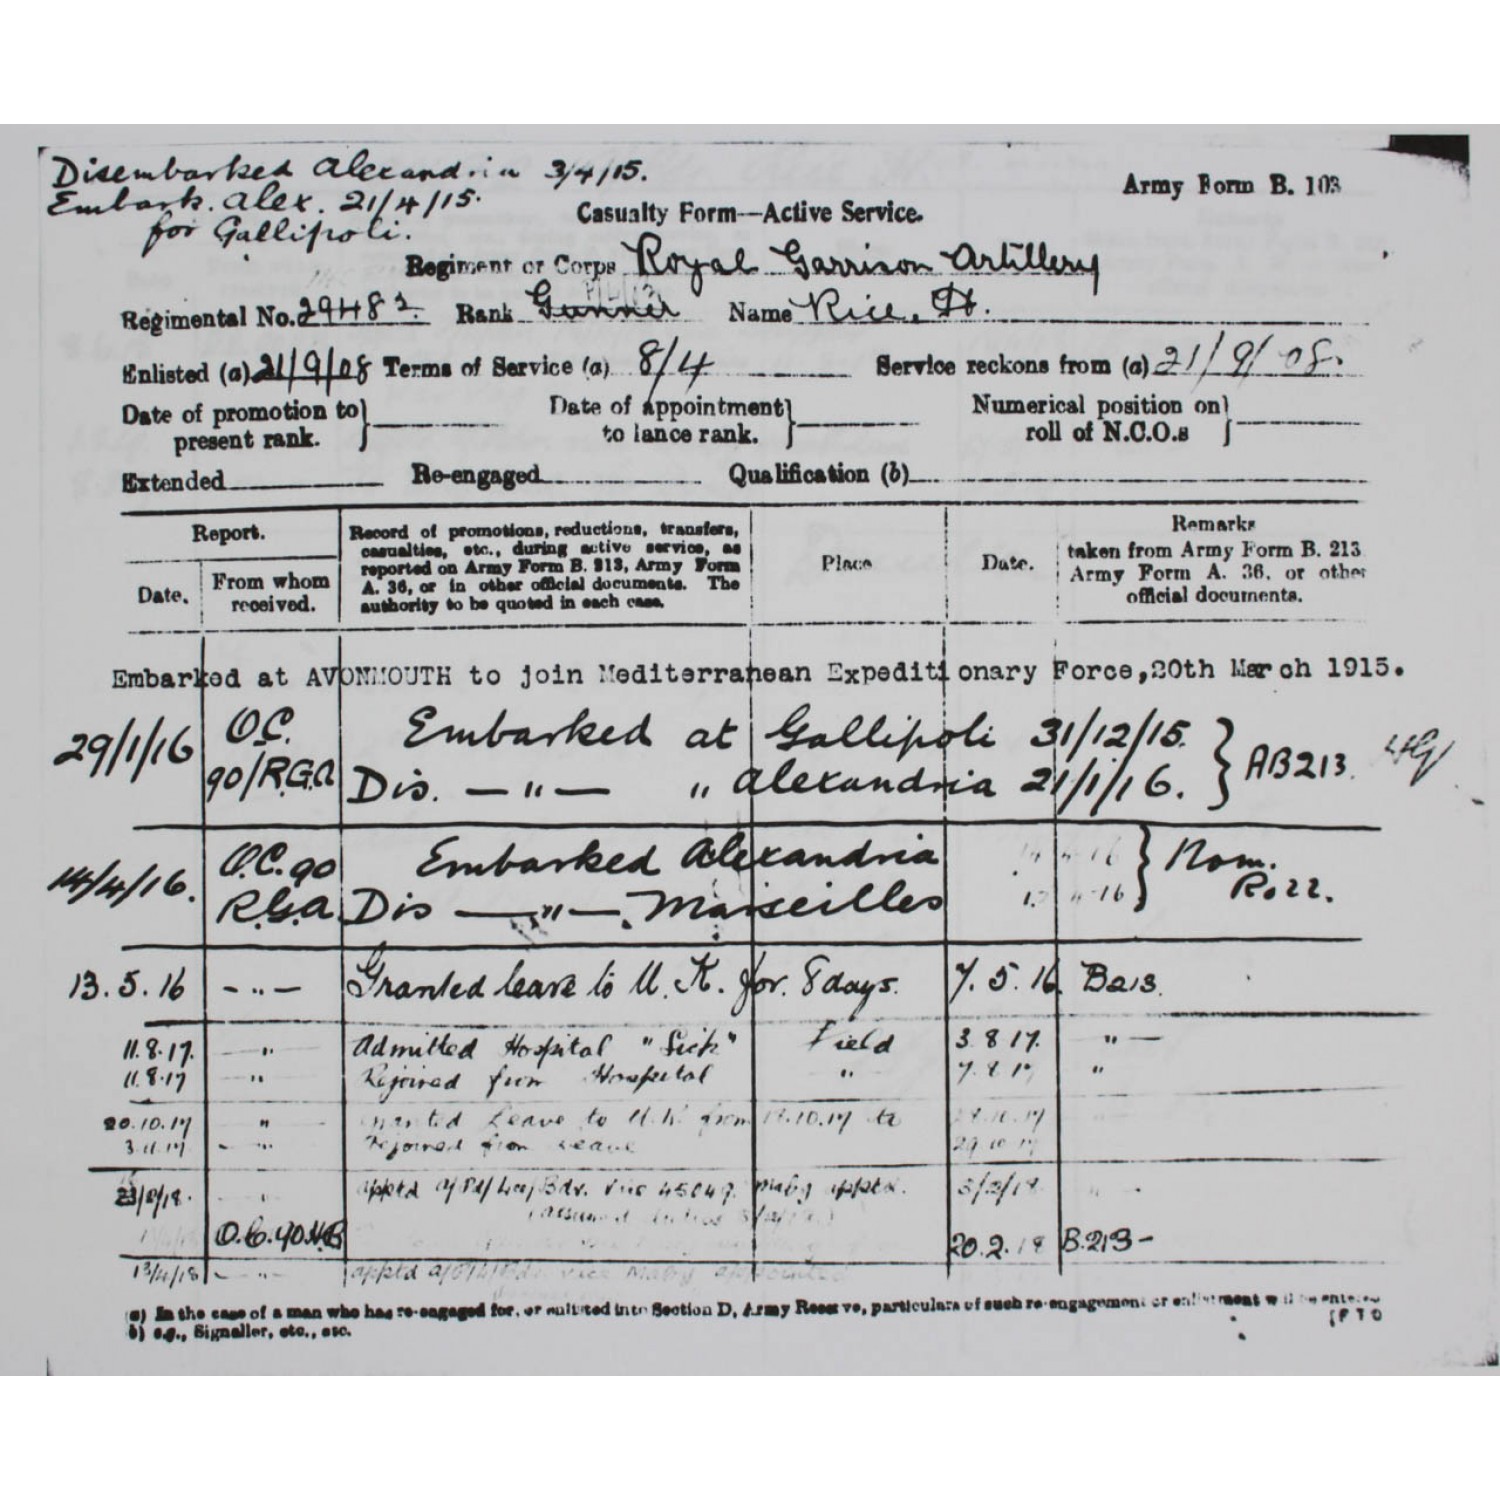 Disembarked Alexandria 3/4/15.
Embark. Alex. 21/4/15.
for Gallipoli.
Army Form B. 103
Casualty Form—Active Service.
Regiment or Corps Royal Garrison Artillery
Regimental No. 29483. Rank Gunner Name Rice, H.
Enlisted (a) 21/9/08 Terms of Service (a) 8/4 Service reckons from (a) 21/9/08.
Date of promotion to present rank. Date of appointment to lance rank. Numerical position on roll of N.C.O.s
Extended Re-engaged Qualification (b)
Report.
Date. From whom received.
Record of promotions, reductions, transfers,
casualties, etc., during active service, as
reported on Army Form B. 213, Army Form
A. 36, or in other official documents. The
authority to be quoted in each case.
Place
Date.
Remarks
taken from Army Form B. 213
Army Form A. 36, or other
official documents.
Embarked at AVONMOUTH to join Mediterranean Expeditionary Force,20th March 1915.
29/1/16 O.C. Embarked at Gallipoli 31/12/15. } AB213.
90/R.G.A Dis. — " — " Alexandria 21/1/16.
14/4/16. O.C. 90 Embarked Alexandria 4-16 } Nom.
R.G.A. Dis — " — Marseilles 4-16 Roll.
13.5.16 - " - Granted leave to U.K. for 8 days. 7.5.16. B213.
11.8.17. " Admitted Hospital "Sick" Field 3.8.17. " —
11.8.17 " Rejoined from Hospital " 7.8.17 "
20.10.17 " Granted Leave to U.K. from 10.17 to 10.17
3.11.17 " Rejoined from Leave 29.10.17
appptd vice 45049. appptd. 3/2/18
O.C. 90 H.B 20.2.18 B.213-
13/4/18 — " — appptd vice appointed
(a) In the case of a man who has re-engaged for, or enlisted into Section D, Army Reserve, particulars of such re-engagement or enlistment will be entered
b) e.g., Signaller, etc., etc. [P T O